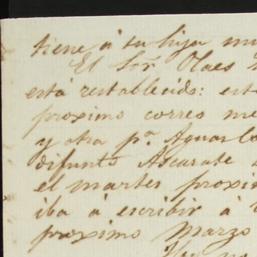 tiene á su hija mu
El Sor. Olaes
esta restablecido: est
proximo correo me
y otra pa. Aguas
difunto Ascarate
el martes proxim
iba á escribir á
proximo Marzo